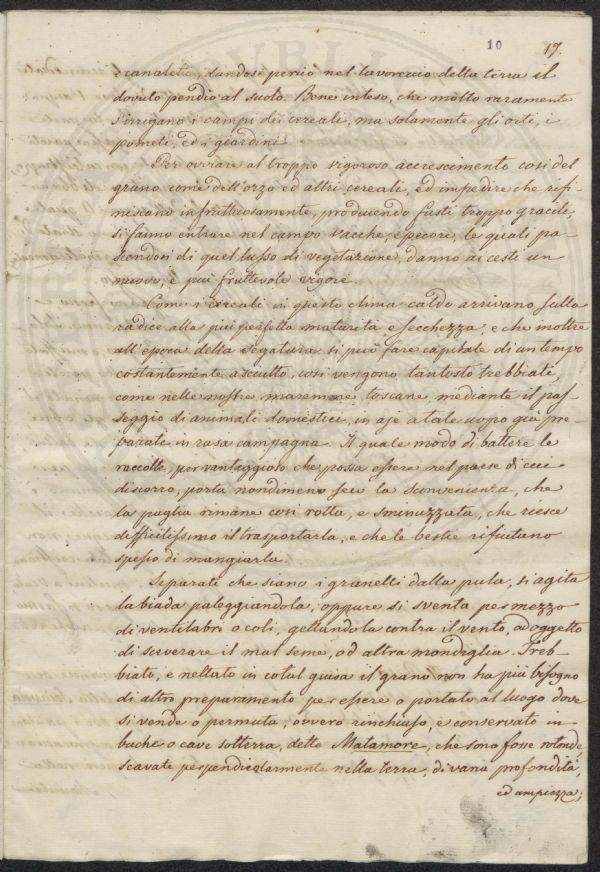 10 17.
e canaletti, dandosi perciò nel lavoreccio della terra il
dovuto pendio al suolo. Bene inteso, che molto raramente
s'irrigano i campi dei cereali, ma solamente gli orti, i
pometi, ed i giardini.
Per ovviare al troppo vigoroso accrescimento così del
grano come dell'orzo ed altri cereali, ed impedire che rifi-
niscano infruttuosamente, producendo fusti troppo gracili,
si fanno entrare nel campo vacche, e pecore, le quali pa-
scendosi di quel lusso di vegetazione, danno ai cesti un
nuovo, e più fruttevole vigore.
Come i cereali in questo clima caldo arrivano sulla
radice alla più perfetta maturità e secchezza, e che inoltre
all'epoca della segatura si può fare capitale di un tempo
costantemente asciutto, così vengono tantosto trebbiati,
come nelle nostre maremme toscane mediante il pas-
seggio di animali domestici, in aje a tale uopo già pre-
parate in rasa campagna. Il quale modo di battere le
raccolte, per vantaggioso che possa essere nel paese di cui
discorro, porta nondimeno seco la sconvenienza, che
la paglia rimane così rotta, e sminuzzata, che riesce
difficilissimo il trasportarla, e che le bestie rifiutano
spesso di mangiarla.
Separati che siano i granelli dalla pula, si agita
la biada paleggiandola, oppure si sventa per mezzo
di ventilabri o coli, gettandola contra il vento, ad oggetto
di sceverare il mal seme, od altra mondiglia. Treb-
biato, e nettato in cotal guisa il grano non ha più bisogno
di altro preparamento per essere o portato al luogo dove
si vende o permuta, ovvero rinchiuso, e conservato in
buche o cave sotterra, dette Matamore, che sono fosse rotonde,
scavate perpendicolarmente nella terra, di varia profondità,
ed ampiezza;